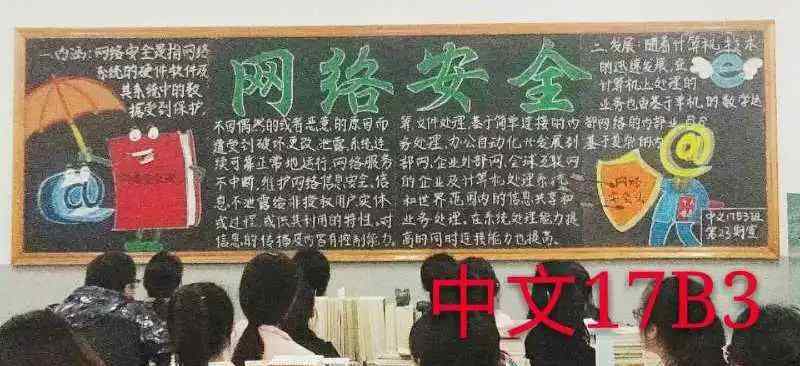 网络安全
一.内涵:网络安全是指网络
系统的硬件软件及
其系统中的数
据受到保护.
不因偶然的或者恶意的原因而
遭受到破坏更改.泄露.系统连
续可靠正常地运行,网络服务
不中断.维护网络信息安全,信
息不泄露给非授权用户.实体
或过程,或供其利用的特性.对
信息的传播及内容有控制能力.
二.发展:随着计算机技术
的迅速发展.
计算机上处理的
业务也由基于单机的数学运
算.文件处理,基于简单连接的内
部网络的内部业
务处理.办公自动化.发展到
基于复杂的内
部网.企业外部网,全球互联网
的企业及计算机处理系统
和世界范围内的信息共享和
业务处理.在系统处理能力提
高的同时连接能力也提高.
网络
中文17B3班
第23期宣
中文17B3